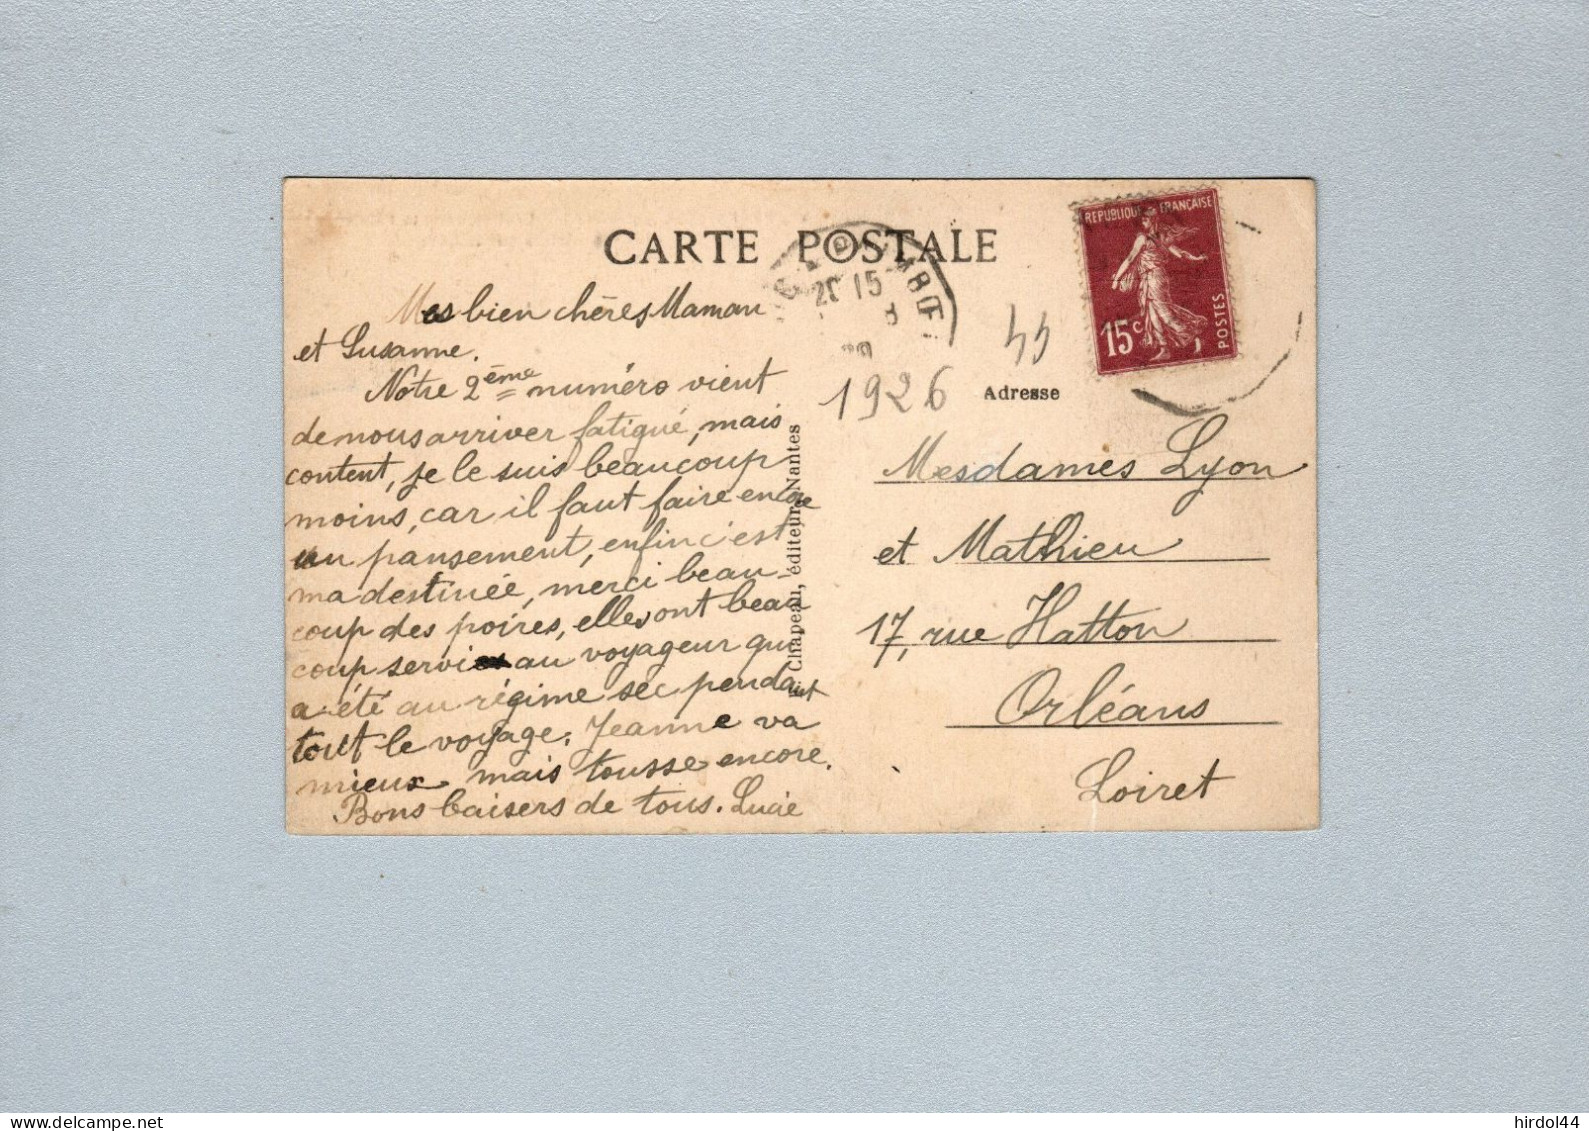 CARTE POSTALE
REPUBLIQUE FRANÇAISE
15c
POSTES
20 15
8
44
1926
Adresse
Mes bien chères Maman
et Susanne.
Notre 2ème numéro vient
de nous arriver fatigué, mais
content, je le suis beaucoup
moins, car il faut faire encore
un pansement, enfin c'est
ma destinée, merci beau-
coup des poires, elles ont beau
coup servi au voyageur qui
a été au régime sec pendant
tout le voyage. Jeanne va
mieux mais tousse encore.
Bons baisers de tous. Lucie
Chapeau, éditeur, Nantes
Mesdames Lyon
et Mathieu
17, rue Hatton
Orléans
Loiret
delcampe.net
hirdol44